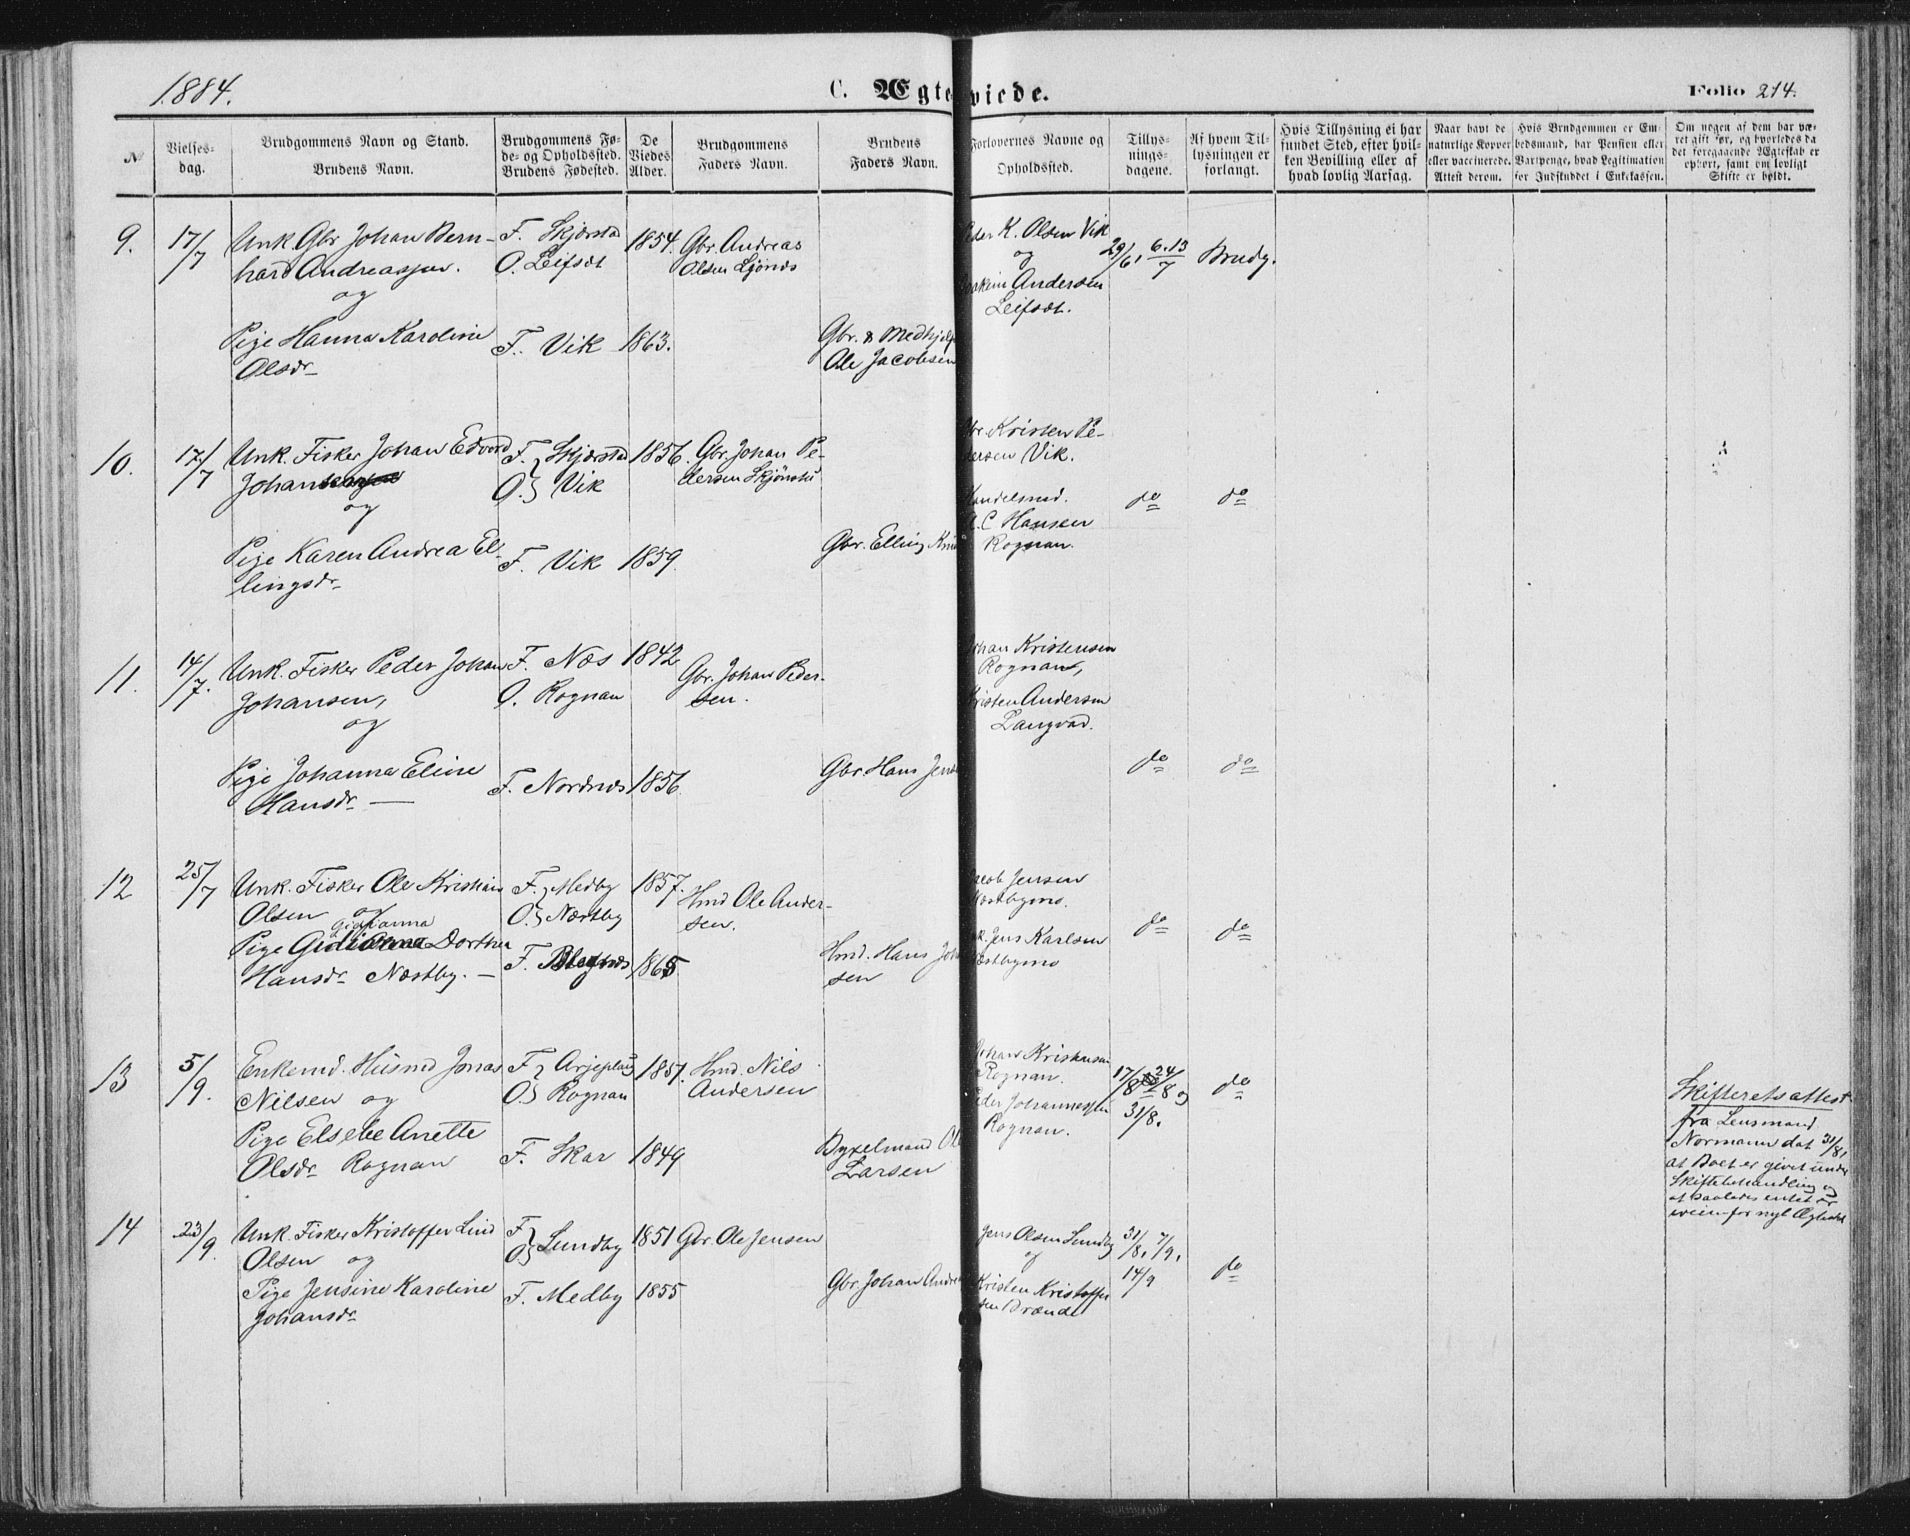 1884.
C. Ægteviede.
Folio 214.
№
Vielses-
dag.
Brudgommens Navn og Stand.
Brudens Navn.
Brudgommens Fø-
de- og Opholdssted.
Brudens Fødested.
De
Viedes
Alder.
Brudgommens
Faders Navn.
Brudens
Faders Navn.
Forlovernes Navne og
Opholdssted.
Tillys-
nings-
dagene.
Af hvem Til-
lysningen er
forlangt.
Hvis Tillysning ei har
fundet Sted, efter hvil-
ken Bevilling eller af
hvad lovlig Aarsag.
Naar havt de
naturlige Kopper
eller vaccinerede.
Attest derom.
Hvis Brudgommen er Em-
bedsmand, har Pension eller
Vartpenge, hvad Legitimation
for Indskuddet i Enkekassen.
Om nogen af dem har væ-
ret gift før, og hvorledes da
det foregaaende Ægteskab er
ophørt, samt om lovligt
Skifte er holdt.
9. 17/7 Unk. Gbr. Johan Bern- F. Skjerstad 1854. Gbr. Andreas
hard Andreassen. O. Leifset Olsen Ljønes
og
Peder K. Olsen Vik
og
Joakim Andersen
Leifset.
29/6, 6. 13/7 Brudg.
Pige Hanna Karoline F. Vik 1863. Gbr. & Medhjelp
Olsdr Ole Jacobsen
10. 17/7 Unk. Fisker Johan Edvard F. Skjerstad 1856. Gbr. Johan Pe-
Johansen O. Vik dersen
og
Gbr. Kristen Pe-
dersen Vik.
Handelsmd.
A. C. Hansen
Rognan.
do do
Pige Karen Andrea El- F. Vik 1859. Gbr. Elling
lingsdr
11. 14/7. Unk. Fisker Peder Johan F. Næs 1842 Gbr. Johan Peder-
Johansen, O. Rognan sen.
og
Johan Kristensen
Rognan,
Kristen Andersen
Langvad.
Pige Johanna Eline F. Nordnæs 1856 Gbr. Hans Jens
Hansdr
do do
12 25/7 Unk. Fisker Ole Kristian F. Medby 1857. Hmd Ole Ander-
Olsen og O. Næstby sen.
Jacob Jensen
Næstbymo.
do do
Pige Dorthea F. 1865 Hmd. Hans Joh
Hansdr Næstby. sen
Jens Karlsen
Næstbymo
13 5/9. Enkemd. Husmd Jonas F. Arjeplaug 1851. Hmd. Nils
Nilsen og O. Rognan Andersen
Johan Kristiansen
Rognan.
Peder Johannessen
Rognan.
17/8 24/8 og
31/8.
do
Pige Elsebe Anette F. Skar 1849 Bygselmand Ole
Olsdr Rognan Larsen
Skifteretsattest
fra Lensmand
Normann dat 31/8,
at Boet er givet under
Skiftebehandling og
at saaledes intet er
iveien for nyt Ægteskab
14 23/9. Unk. Fisker Kristoffer Lind F. O. Lundby 1851 Gbr. Ole Jensen
Olsen og
Jens Olsen Lundby
og
Kristen Kristoffer
sen Brænde
31/8, 7/9,
14/9
do
Pige Jensine Karoline F. Medby 1855 Gbr. Johan Andre
Johansdr